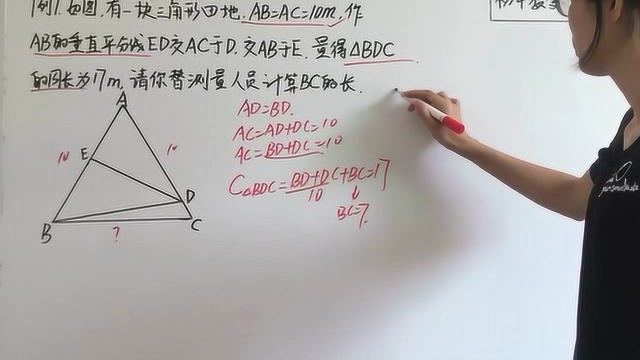 例1.如图,有一块三角形田地,AB=AC=10m,作
AB的垂直平分线ED交AC于D,交AB于E,量得△BDC
的周长为17m,请你替测量人员计算BC的长.
A
E
D
B
C
10
10
?
AD=BD.
AC=AD+DC=10
AC=BD+DC=10
C△BDC=BD+DC+BC=17
10
BC=7.